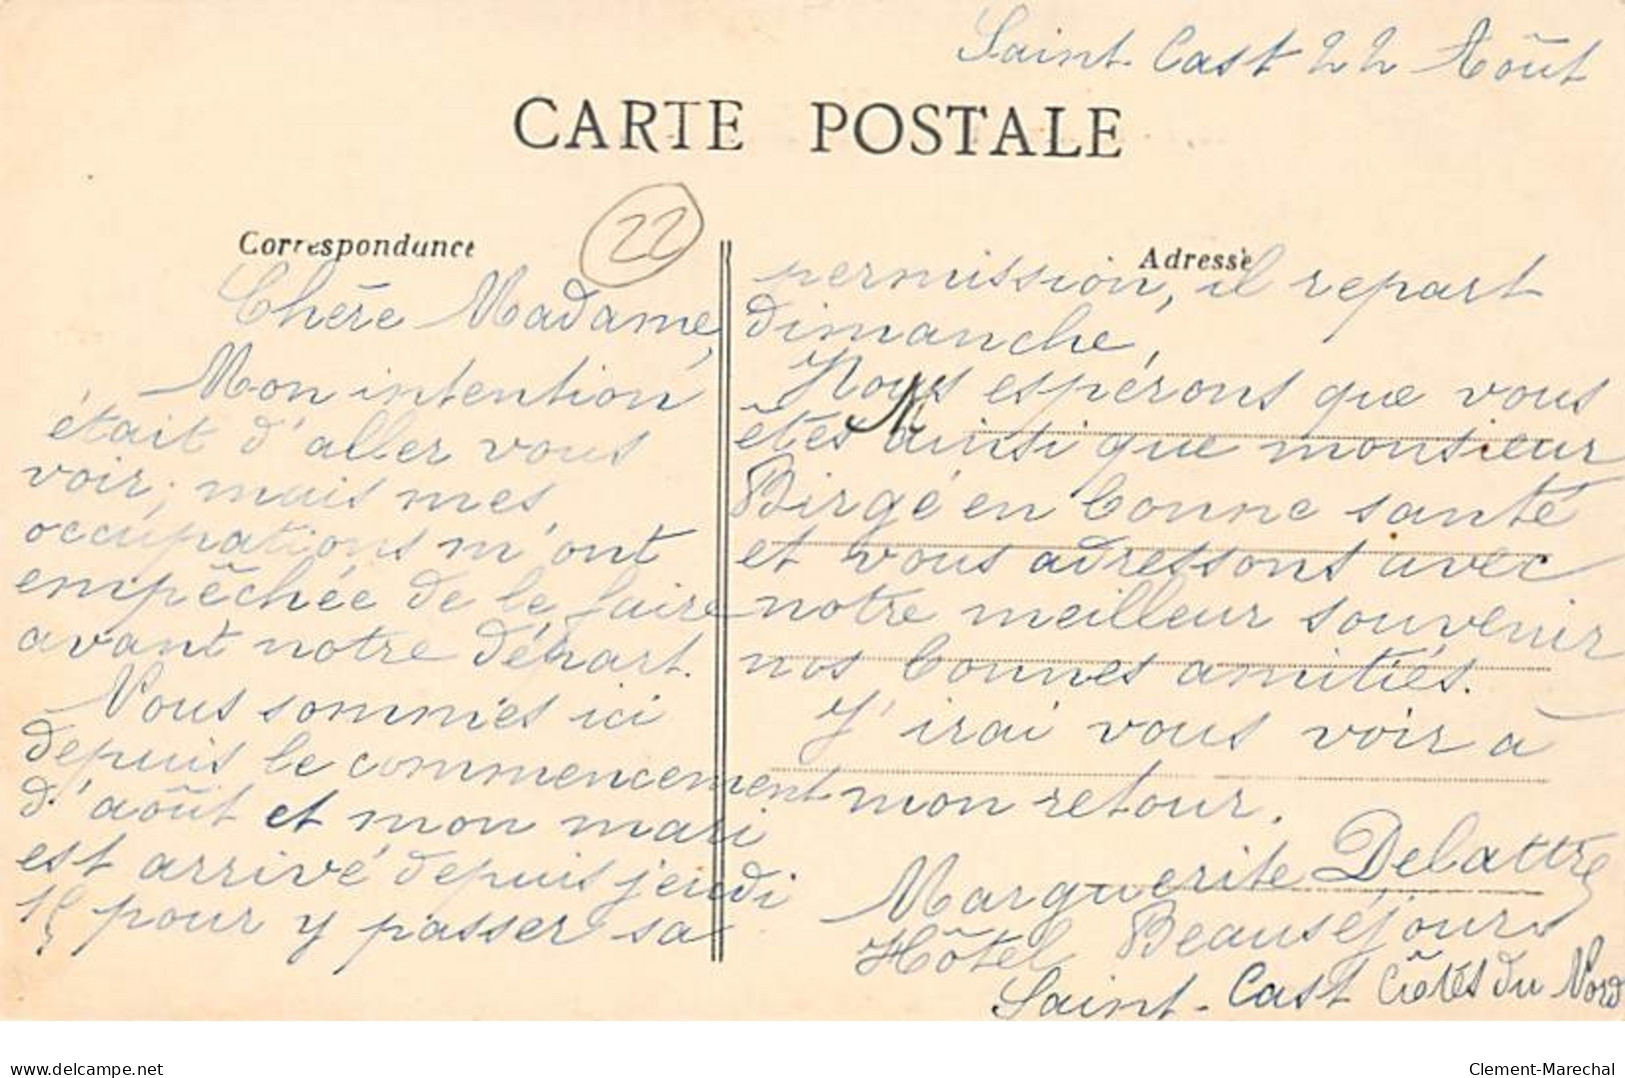 Saint Cast 22 Août
CARTE POSTALE
22
Correspondance
Adresse
Chère Madame,
Mon intention
était d'aller vous
voir; mais mes
occupations m'ont
empêchée de le faire
avant notre départ.
Nous sommes ici
depuis le commencement
d'août et mon mari
est arrivé depuis jeudi
15 pour y passer sa
permission, il repart
dimanche,
Nous espérons que vous
M
êtes ainsi que monsieur
Birgé en bonne santé
et vous adressons avec
notre meilleur souvenir
nos bonnes amitiés.
J'irai vous voir à
mon retour.
Marguerite Delattre
Hôtel Beauséjour
Saint-Cast Côtes du Nord
www.delcampe.net
Clement-Marechal